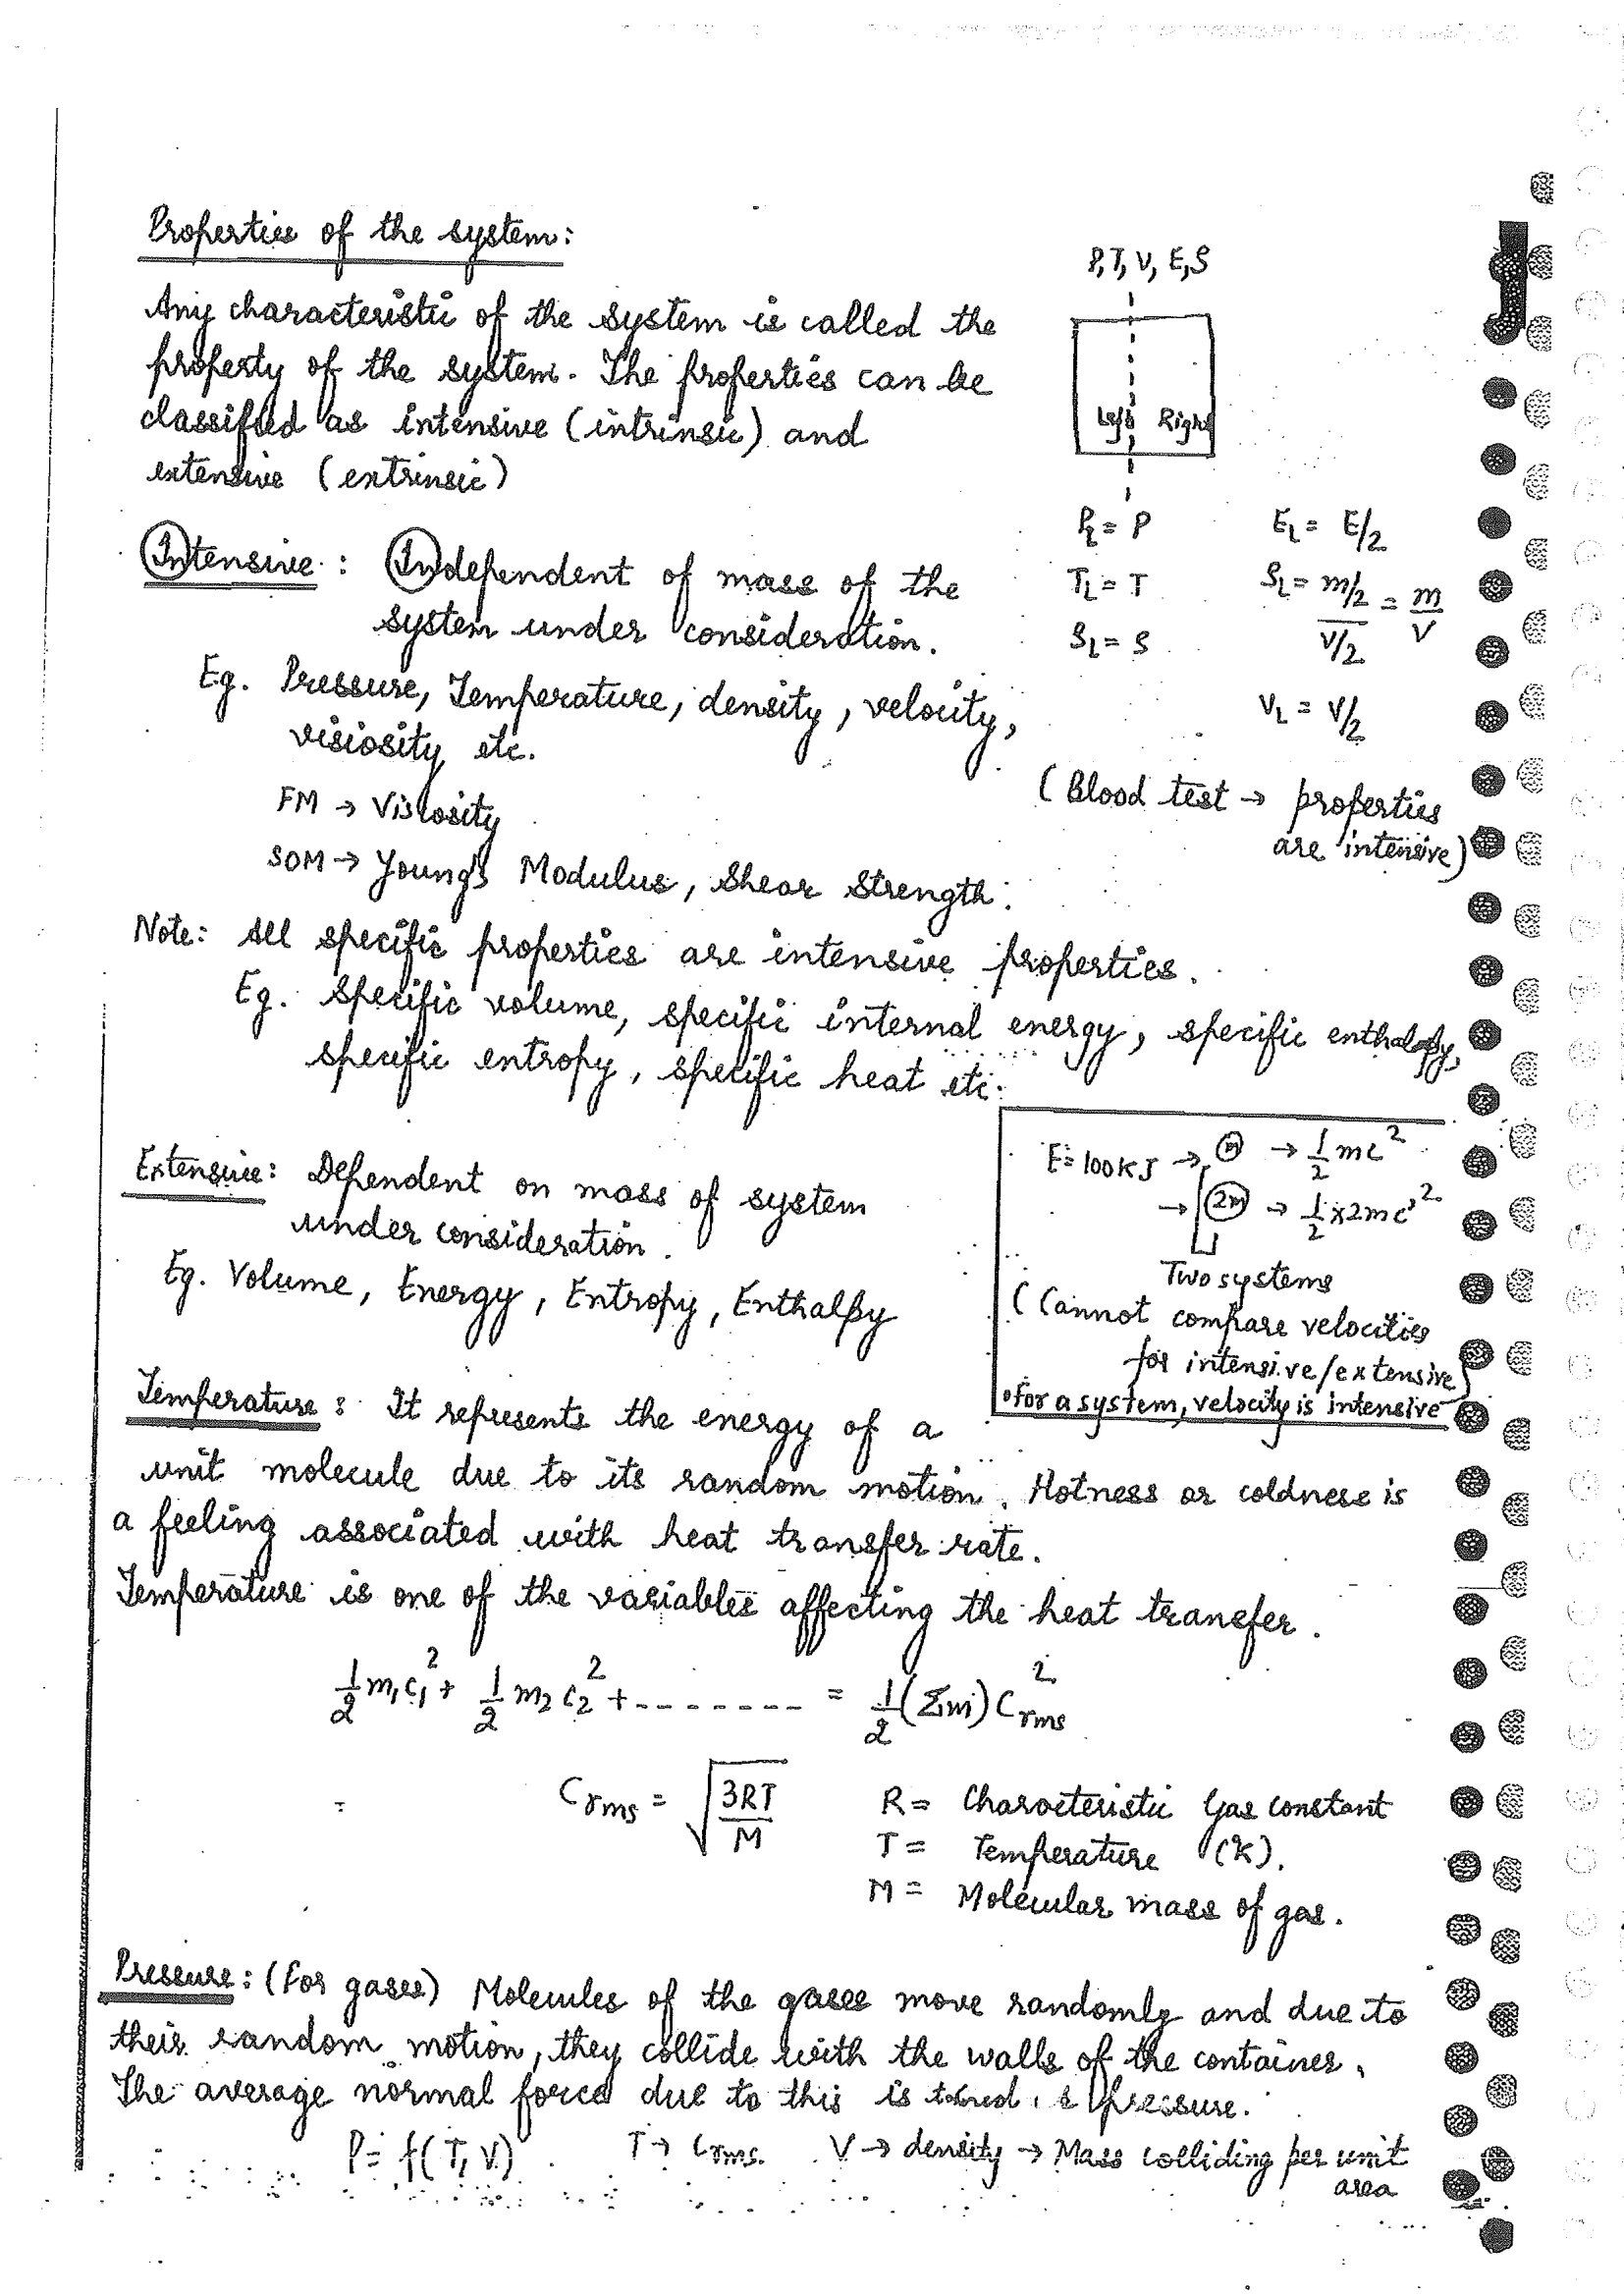 Properties of the system:
P, T, V, E, S
Any characteristic of the system is called the
property of the system. The properties can be
classified as intensive (intrinsic) and
extensive (extrinsic)
Left Right
Intensive: Independent of mass of the
system under consideration.
Eg. Pressure, Temperature, density, velocity,
visiosity etc.
FM → Viscosity
SOM → Young's Modulus, Shear Strength.
PL = P EL = E/2
TL = T SL = m/2 / V/2 = m/V
SL = S
VL = V/2
(Blood test → properties
are intensive)
Note: All specific properties are intensive properties.
Eg. Specific volume, specific internal energy, specific enthalpy,
specific entropy, specific heat etc.
Extensive: Dependent on mass of system
under consideration.
Eg. Volume, Energy, Entropy, Enthalpy
E = 100KJ → m → 1/2 mc²
→ 2m → 1/2 × 2mc'²
Two systems
(Cannot compare velocities
for intensive/extensive)
• For a system, velocity is intensive
Temperature: It represents the energy of a
unit molecule due to its random motion. Hotness or coldness is
a feeling associated with heat transfer rate.
Temperature is one of the variables affecting the heat transfer.
1/2 m₁c₁² + 1/2 m₂c₂² + -------- = 1/2 (Σmi) Crms²
Crms = √(3RT/M) R = Characteristic Gas constant
T = Temperature (K).
M = Molecular mass of gas.
Pressure: (For gases) Molecules of the gases move randomly and due to
their random motion, they collide with the walls of the container.
The average normal force due to this is pressure.
P = f(T, V) T → Crms. V → density → Mass colliding per unit
area